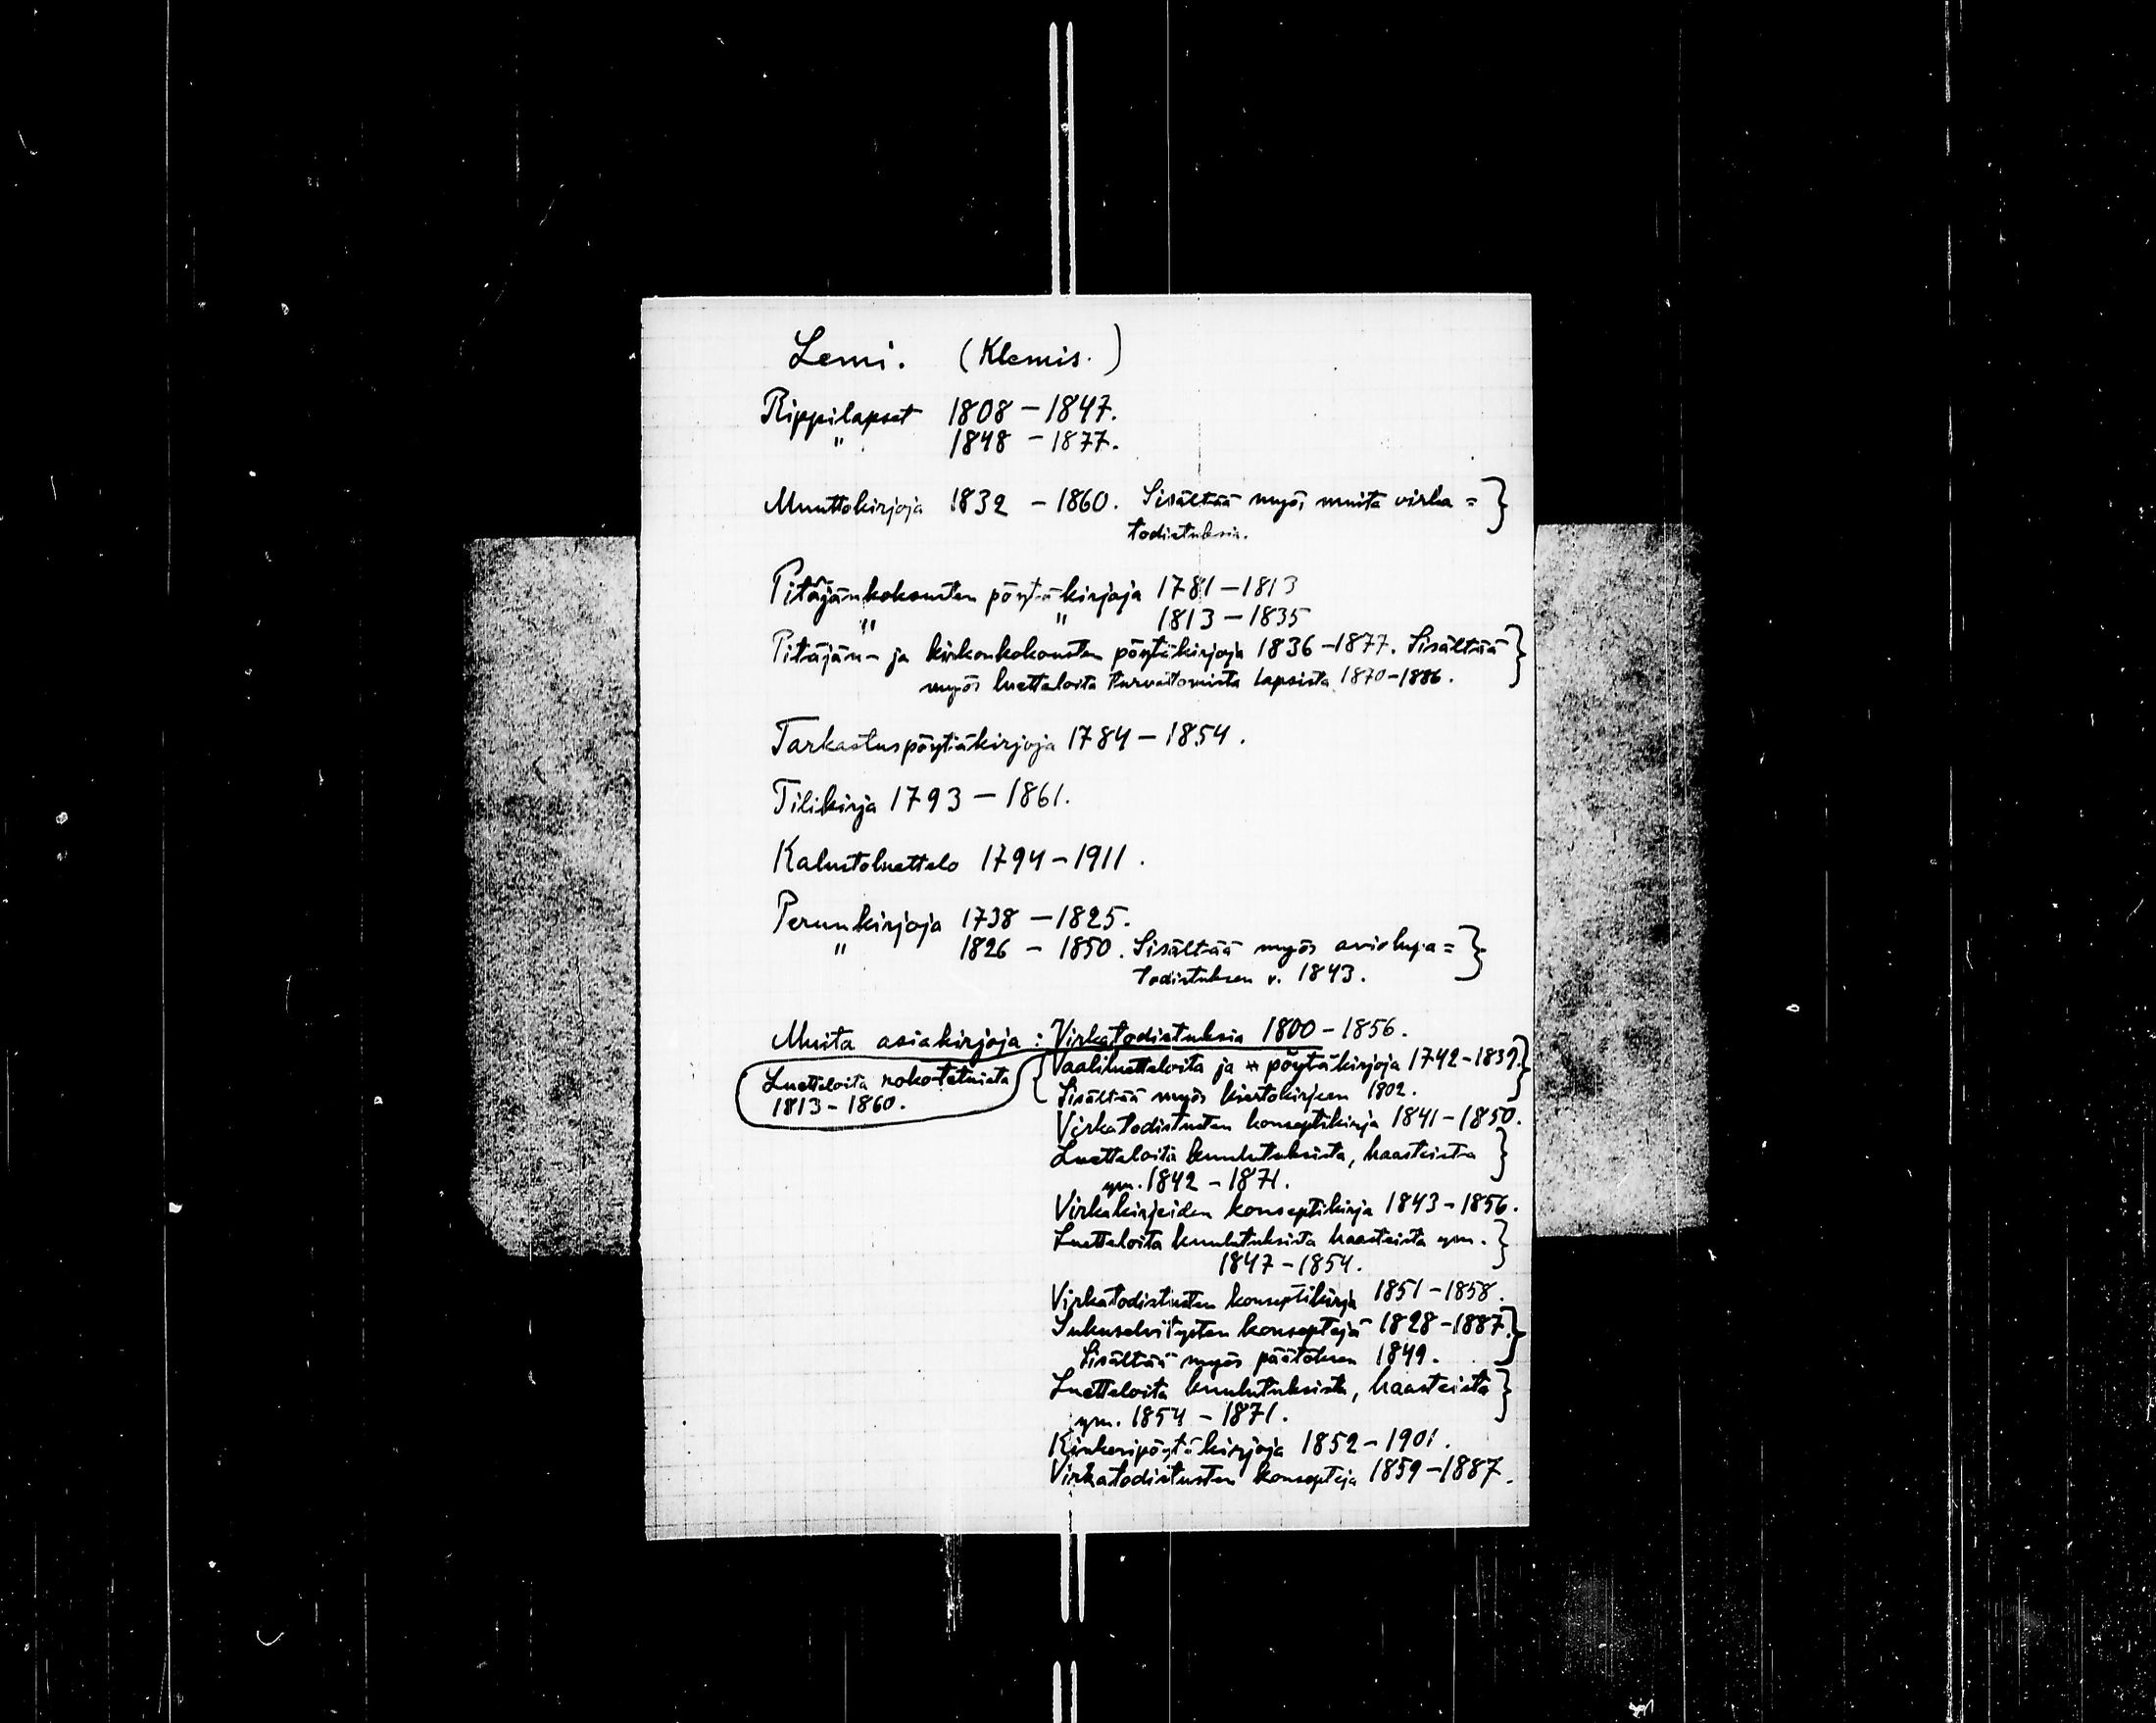 Lemi. (Klemis.)
Rippilapset 1808 – 1847.
" 1848 – 1877.
Muuttokirjoja 1832 – 1860. Sisältää myös muita virka =
todistuksia.
Pitäjänkokousten pöytäkirjoja 1781 – 1813
" " 1813 – 1835
Pitäjän- ja kirkonkokousten pöytäkirjoja 1836 – 1877. Sisältää
myös luetteloita turvattomista lapsista 1870 – 1886.
Tarkastuspöytäkirjoja 1784 – 1854.
Tilikirja 1793 – 1861.
Kalustoluettelo 1794 – 1911.
Perunkirjoja 1738 – 1825.
" 1826 – 1850. Sisältää myös aviolupa =
todistuksen v. 1843.
Muita asiakirjoja : Virkatodistuksia 1800 – 1856.
Luetteloita rokotetuista
1813 – 1860.
Vaaliluetteloita ja pöytäkirjoja 1742 – 1839.
Sisältää myös kiertokirjeen 1802.
Virkatodistusten konseptikirja 1841 – 1850.
Luetteloita kuulutuksista, haasteista
ym. 1842 – 1871.
Virkakirjeiden konseptikirja 1843 – 1856.
Luetteloita kuulutuksista haasteista ym.
1847 – 1854.
Virkatodistusten konseptikirja 1851 – 1858.
Sukuselvitysten konseptejä 1828 – 1887.
Sisältää myös päätöksen 1849.
Luetteloita kuulutuksista, haasteista
ym. 1854 – 1871.
Kinkeripöytäkirjoja 1852 – 1901.
Virkatodistusten konsepteja 1859 – 1887.